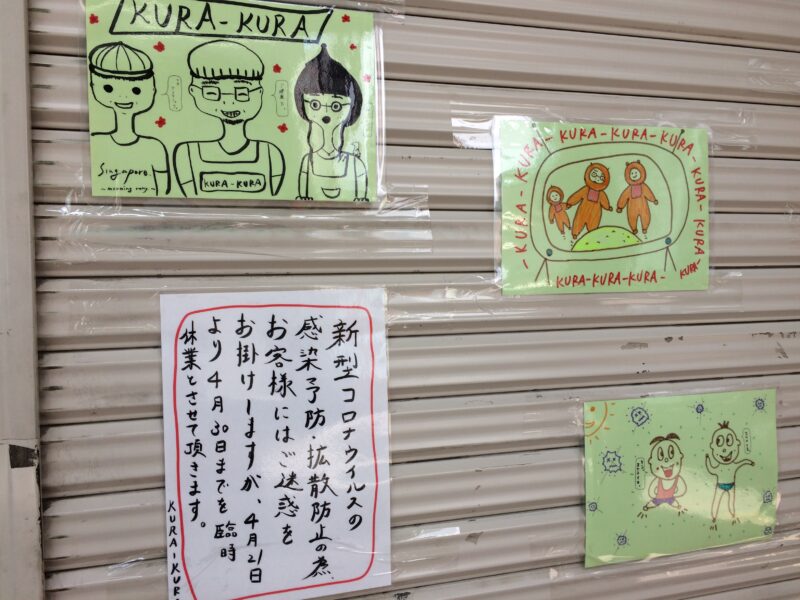 KURA-KURA
KURA-KURA
Singapore
~morning cafy~
-KURA-KURA-KURA-KURA-KURA-KURA-KURA-
KURA-KURA-KURA-
新型コロナウイルスの
感染予防・拡散防止の為
お客様にはご迷惑を
お掛けしますが、4月21日
より4月30日までを臨時
休業とさせて頂きます。
KURA-KUR